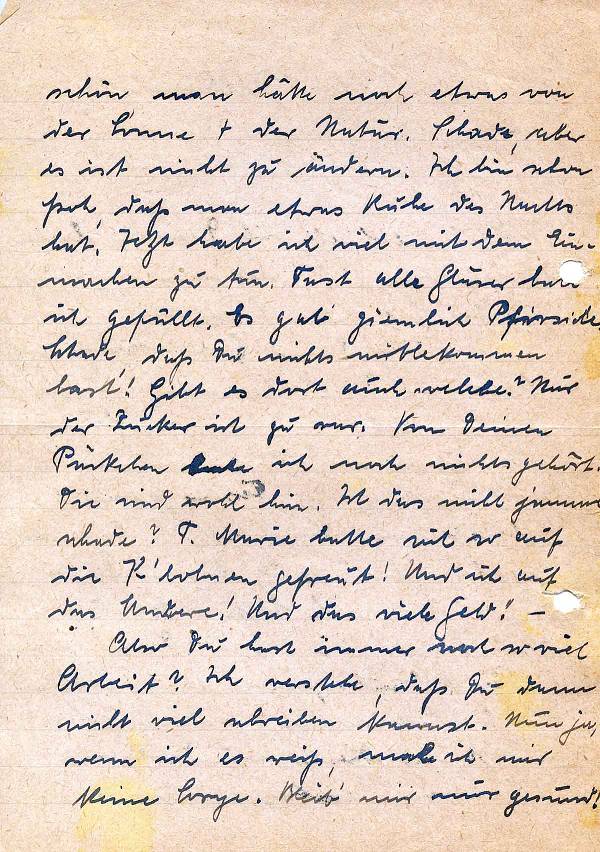 schön, man hätte noch etwas von
der Sonne + der Natur. Schade, aber
es ist nicht zu ändern. Ich bin schon
froh, daß man etwas Ruhe des Nachts
hat. Jetzt habe ich viel mit dem Ein-
machen zu tun. Fast alle Gläser hab
ich gefüllt. Es gab ziemlich Pfirsiche,
schade, daß Du nichts mitbekommen
hast! Gibt es dort auch welche? Nur
der Zucker ist zu rar. Von Deinen
Päckchen habe ich noch nichts gehört.
Die sind wohl hin. Ist das nicht jammer-
schade? T. Marie hatte sich so auf
die K'bohnen gefreut! Und ich auf
das Andere! Und das viele Geld! –
Also Du hast immer noch so viel
Arbeit? Ich verstehe, daß Du dann
nicht viel schreiben kannst. Nun ja,
wenn ich es weiß, mach ich mir
keine Sorge. Bleib' mir nur gesund!